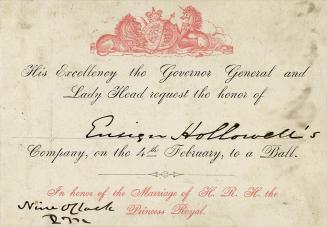 His Excellency the Governor General and
Lady Head request the honor of
Ensign Hollowell's
Company, on the 4th February, to a Ball.
In honor of the Marriage of H. R. H. the
Princess Royal.
Nine O'Clock